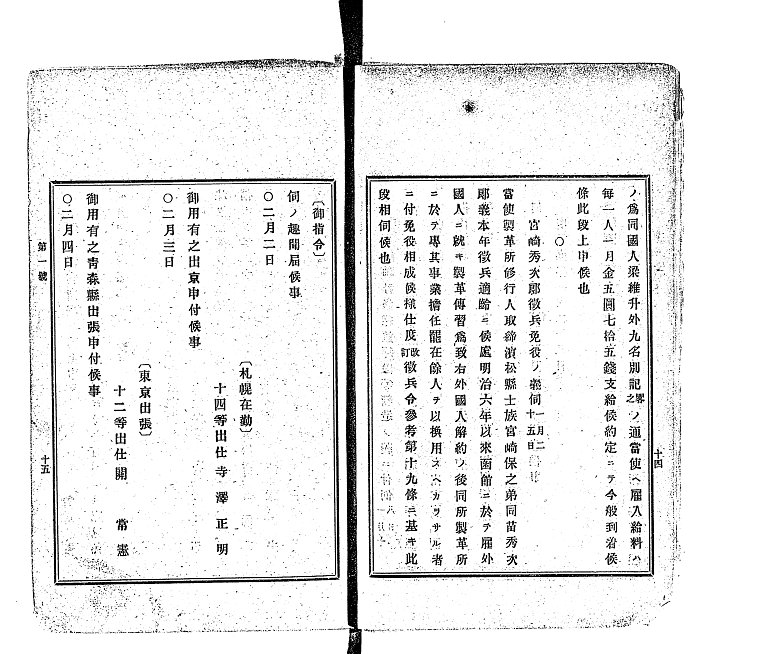 ノ爲同國人梁維升外九名別記略之ノ通當使ヘ雇入給料ハ
每一人一月金五圓七拾五錢支給候約定ニテ今般到着候
條此段上申候也
○
宮崎秀次郞徵兵免役ノ義伺一月二十五日
當使製革所修行人取締濱松縣士族宮崎保之弟同苗秀次
郞義本年徵兵適齡ニ候處明治六年以來函館ニ於テ雇外
國人ニ就キ製革傳習爲致右外國人解約ノ後同所製革所
ニ於テ專其事業擔任罷在餘人ヲ以換用スヘカラサル者
ニ付免役相成候樣仕度改訂徵兵令參考第十九條ニ基キ此
段相伺候也
十四
〔御指令〕
伺ノ趣聞届候事
○二月二日
〔札幌在勤〕
十四等出仕寺澤正明
御用有之出京申付候事
○二月三日
〔東京出張〕
十二等出仕開 常憲
御用有之靑森縣出張申付候事
○二月四日
第一號
十五